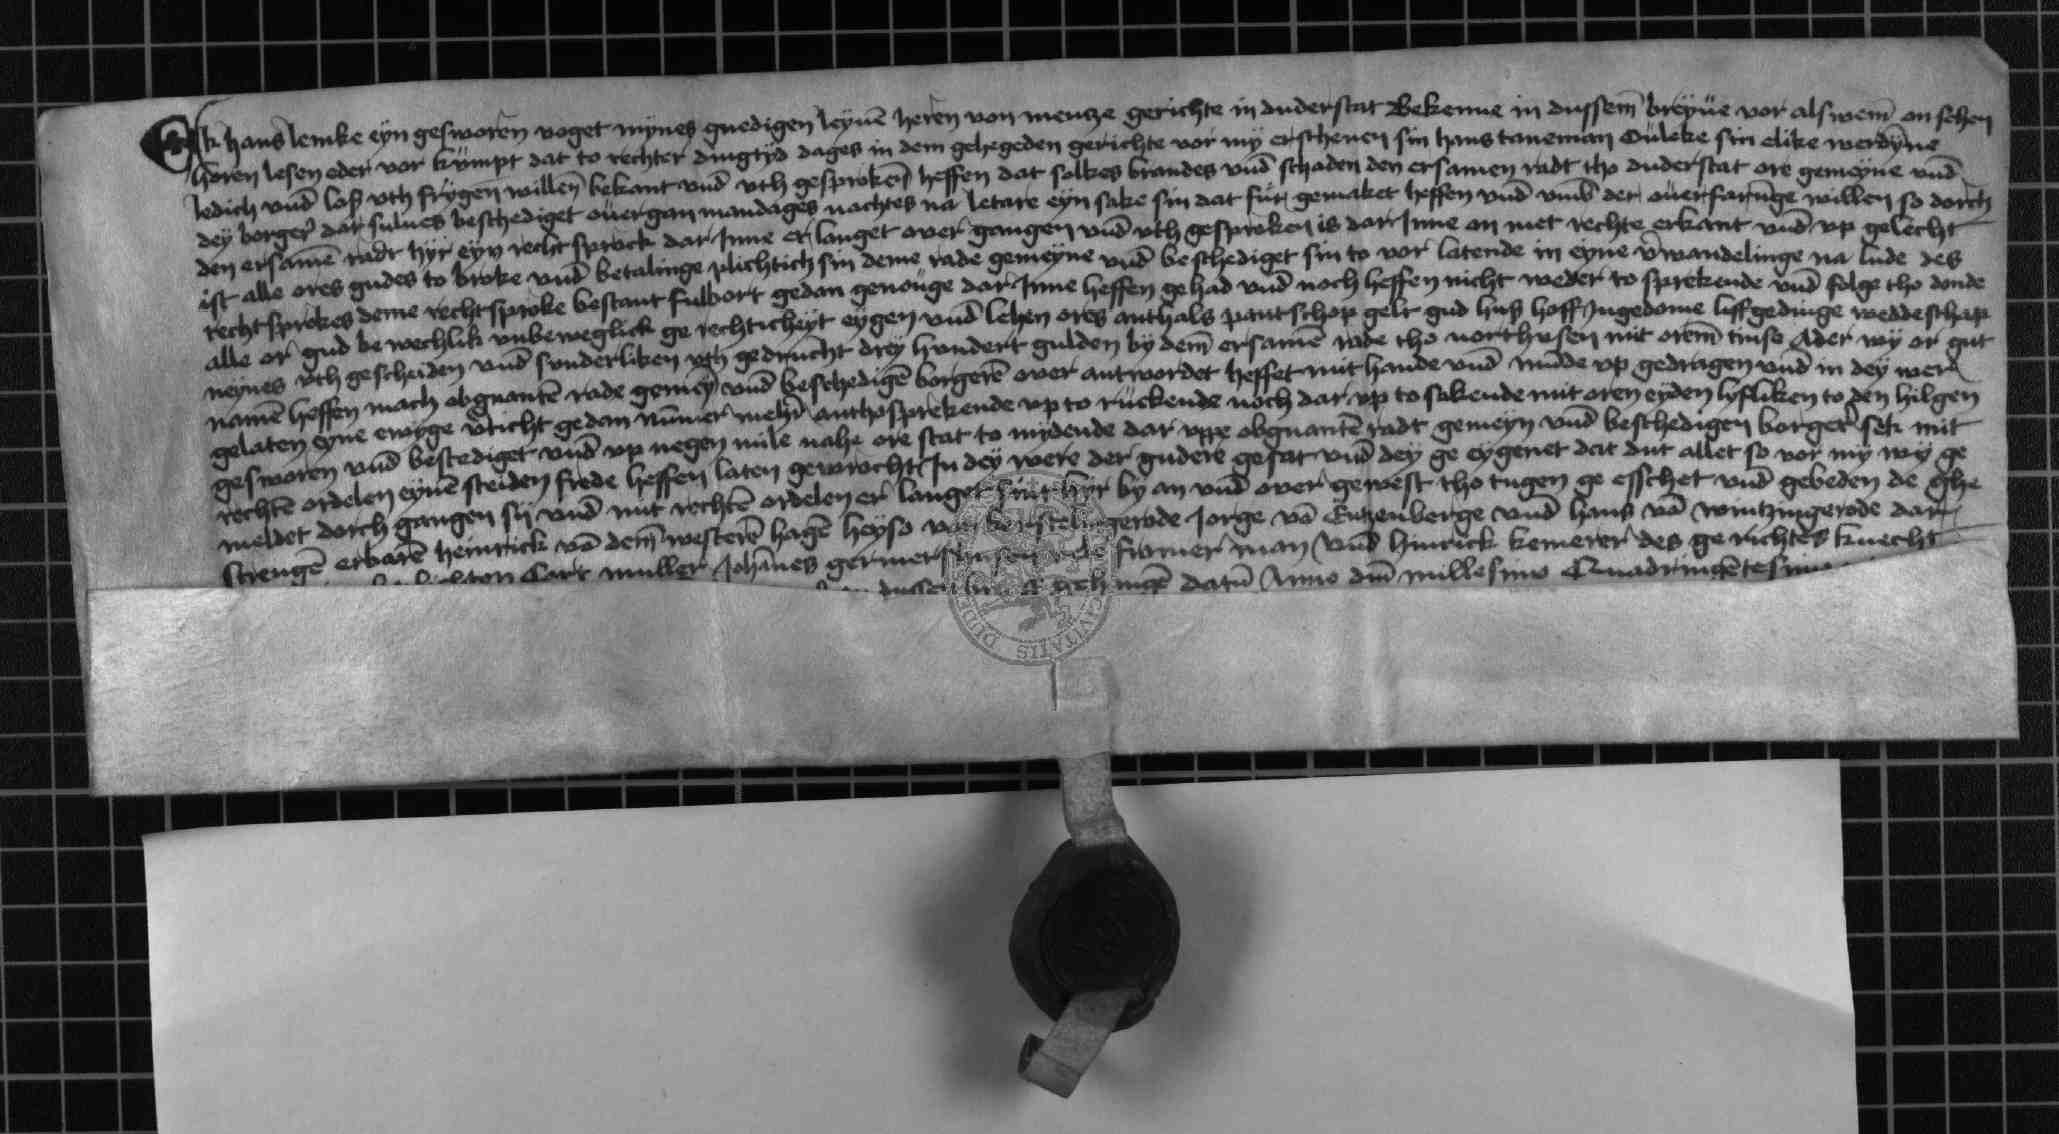 Ek hans lemke eyn gesworen voget mynes gnedigen leyuē heren von mentze gerichte in duderstat Bekenne in dussem̄ breyūe vor alswem̄ on sehen
horen lesen eder vor kūmpt dat to rechter dingtyd dages in dem gehegeden gerichte vor my erschenen sin hans taneman Oūleke sin elike werdȳne
ledich vnd̄ loß vth frygen willen̄ bekant vnd̄ vth gesproken̄ heffen dat solkes brandes vnd̄ schaden den ersamen radt tho duderstat ore gemeyne vnd̄
dey borger dar sulues beschediget ouergan mandages nachtes na letare eyn sake sin dat fūr gemaket heffen vnd̄ vmb̄ der ouerfarūnge willen so dorch
den ersamē radt hyr eyn recht sprock dar Inne er langet over gangen vnd̄ vth gesproken is dar Inne on met rechte erkant vnd̄ vp gelecht
ist alle ores gudes to broke vnd̄ betalinge plichtich sin deme rade gemeyne vnd̄ beschediget sin to vor latende in eyne v̄wandelinge na lude des
recht sprokes deme rechtsproke bestant fulbort gedan genoūge dar Inne heffen ge had vnd̄ noch heffen nicht weder to sprekende vnd̄ folge tho donde
alle or gud be wechlik vnbeweglick ge rechticheyt eygen vnd̄ lehen ores anthals pantschop gelt gud huß hoff Ingedome liffgedinge weddeschap
neynes vth gescheiden vnd̄ sunderliken vth gedrucht drey hundert gulden by dem̄ ersamē rade tho northusen mit orem̄ tinse Ader wy or gut
namē heffen mach obgnantē rade gemey vnd̄ beschedigē borgerē over antwordet heffet mit hande vnd̄ mūde vp gedragen vnd̄ in dey were
gelaten eyne ewyge v̄ticht gedan nūmer mehr anthosprekende vp to rūckende noch dar vp to sakende mit oren eyden lyfliken to den hilgen
gesworen vnd̄ bestediget vnd̄ vp negen mile nahe ore stat to mydende dar vppe obgnantē radt gemeyn vnd̄ beschedigen borger sek mit
rechtē ordelen eynē steiden frede heffen laten gewrocht In dey were der gudere gesat vnd̄ dey ge eygenet dat dut allet so vor my wy ge
meldet dorch gangen sy vnd̄ mit rechtē ordelen er langet hyr by an vnd̄ over gewest tho tugen ge esschet vnd̄ gebeden de ghe
strengē erbarē heinrick vā dem̄ westerē hagē heyso Jorge vā Entzenberge vnd̄ hans vā wintzingerode dar
Cort muller Johānes framer man vnd̄ hinrick kemerer des ge richtes knecht
dussen datū Anno dm̄ millesimo Quadringētesimo
CIVITATIS DUDE